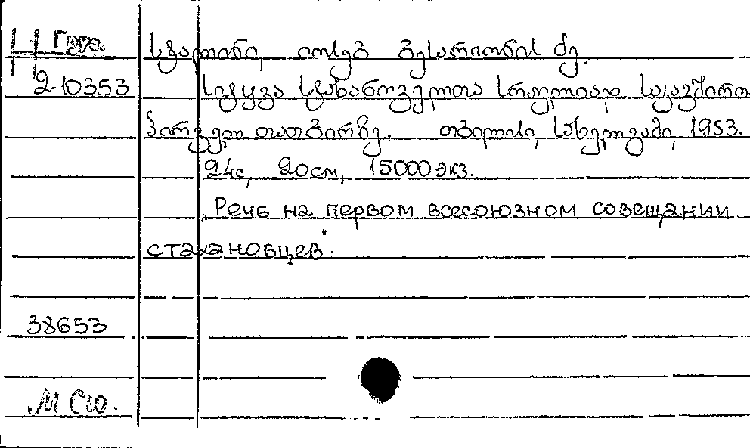 Груз.
210353
სტალინი, იოსებ ბესარიონის ძე.
სიტყვა სტახანოველთა სრულიად საკავშირო
პირველ თათბირზე. თბილისი, სახელგამი, 1953.
24с, 20см, 15000 экз.
Речь на первом всесоюзном совещании
стахановцев.
38653
М Сю.